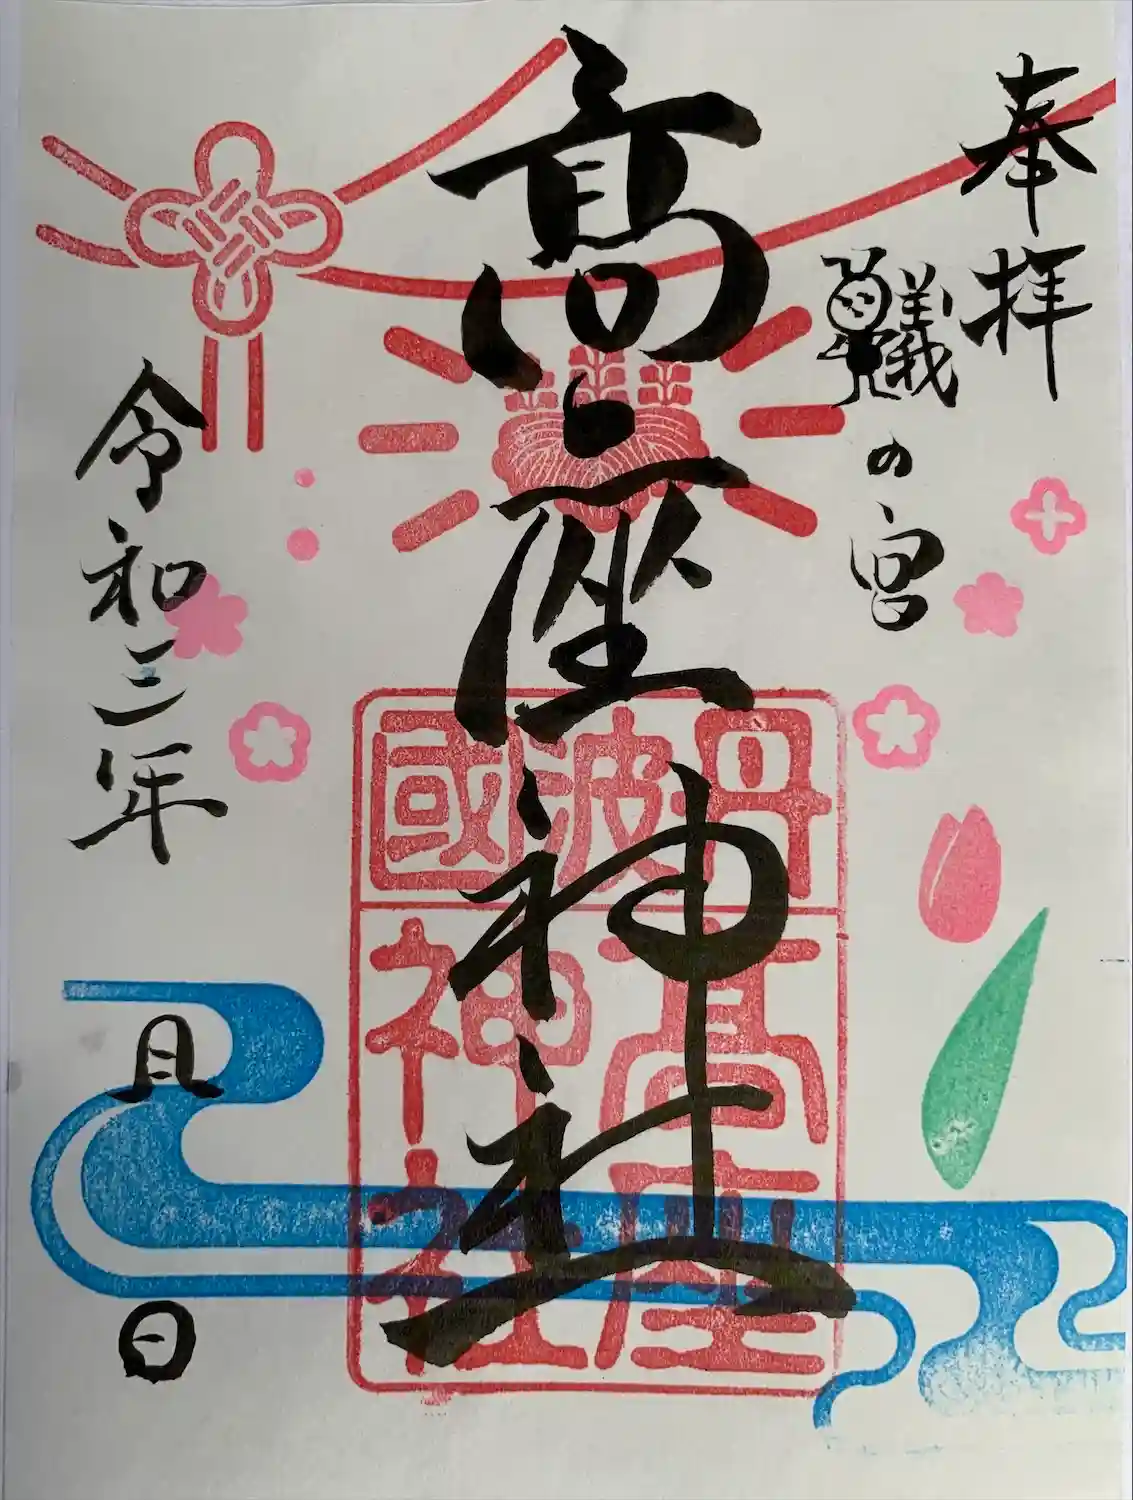 奉拝
蟻の宮
高座神社
丹波國
高座
神社
令和三年
月
日